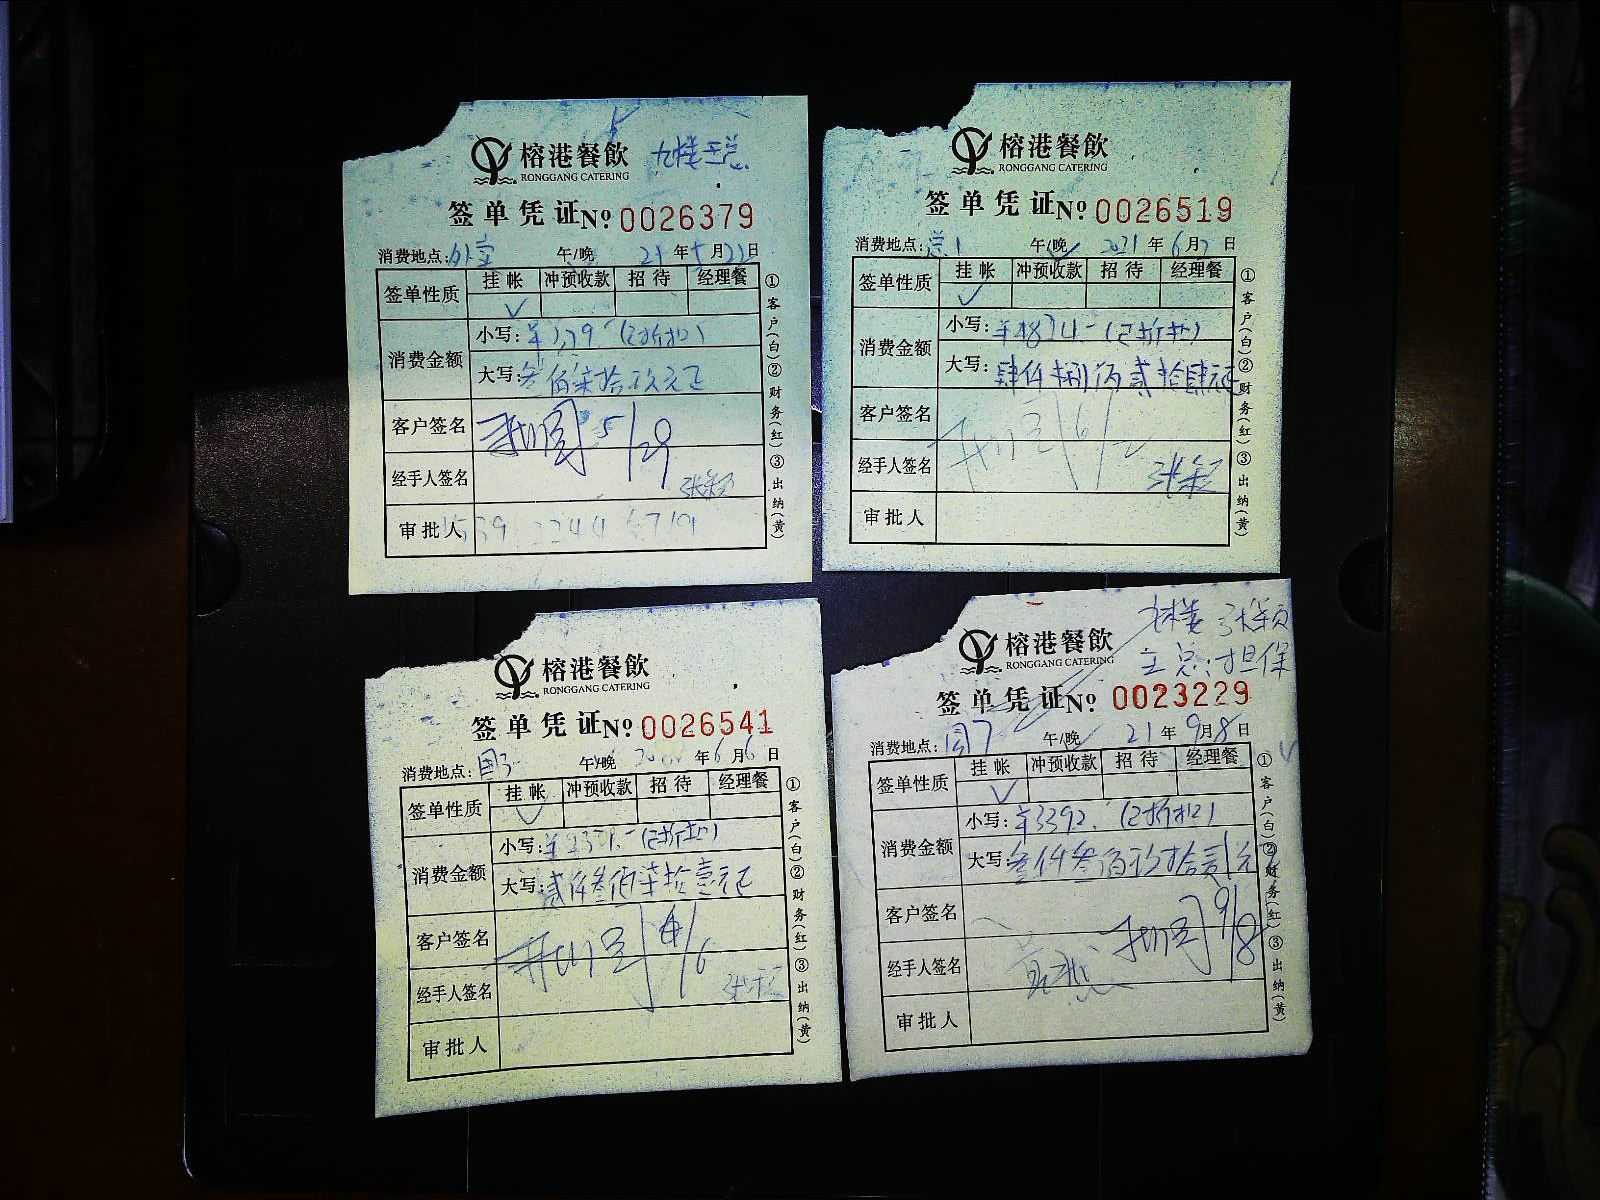 九楼王总
榕港餐飲
RONGGANG CATERING
签单凭证№ 0026379
消费地点: 午/晚 21年5月22日
签单性质 挂帐 冲预收款 招待 经理餐
✓
消费金额 小写:¥379 (已折扣)
大写:叁佰柒拾玖元正
客户签名 5/29
经手人签名
审批人
①客户(白)②财务(红)③出纳(黄)
榕港餐飲
RONGGANG CATERING
签单凭证№ 0026519
消费地点: 午/晚 2021年6月2日
签单性质 挂帐 冲预收款 招待 经理餐
✓
消费金额 小写:¥4824.- (已折扣)
大写:肆仟捌佰贰拾肆元正
客户签名 6/2
经手人签名
审批人
①客户(白)②财务(红)③出纳(黄)
榕港餐飲
RONGGANG CATERING
签单凭证№ 0026541
消费地点: 午/晚 年6月6日
签单性质 挂帐 冲预收款 招待 经理餐
✓
消费金额 小写: (已折扣)
大写:贰仟叁佰柒拾壹元正
客户签名
经手人签名
审批人
①客户(白)②财务(红)③出纳(黄)
九楼
担保
榕港餐飲
RONGGANG CATERING
签单凭证№ 0023229
消费地点: 午/晚 21年9月8日
签单性质 挂帐 冲预收款 招待 经理餐
✓
消费金额 小写:¥3392. (已折扣)
大写:叁仟叁佰玖拾贰元
客户签名 9/8
经手人签名
审批人
①客户(白)②财务(红)③出纳(黄)